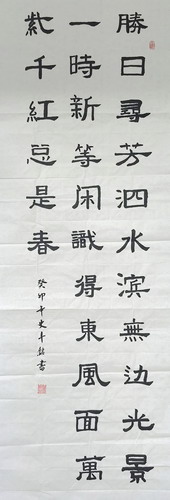 勝日尋芳泗水滨無边光景
一時新等闲識得東風面萬
紫千紅总是春
癸卯書